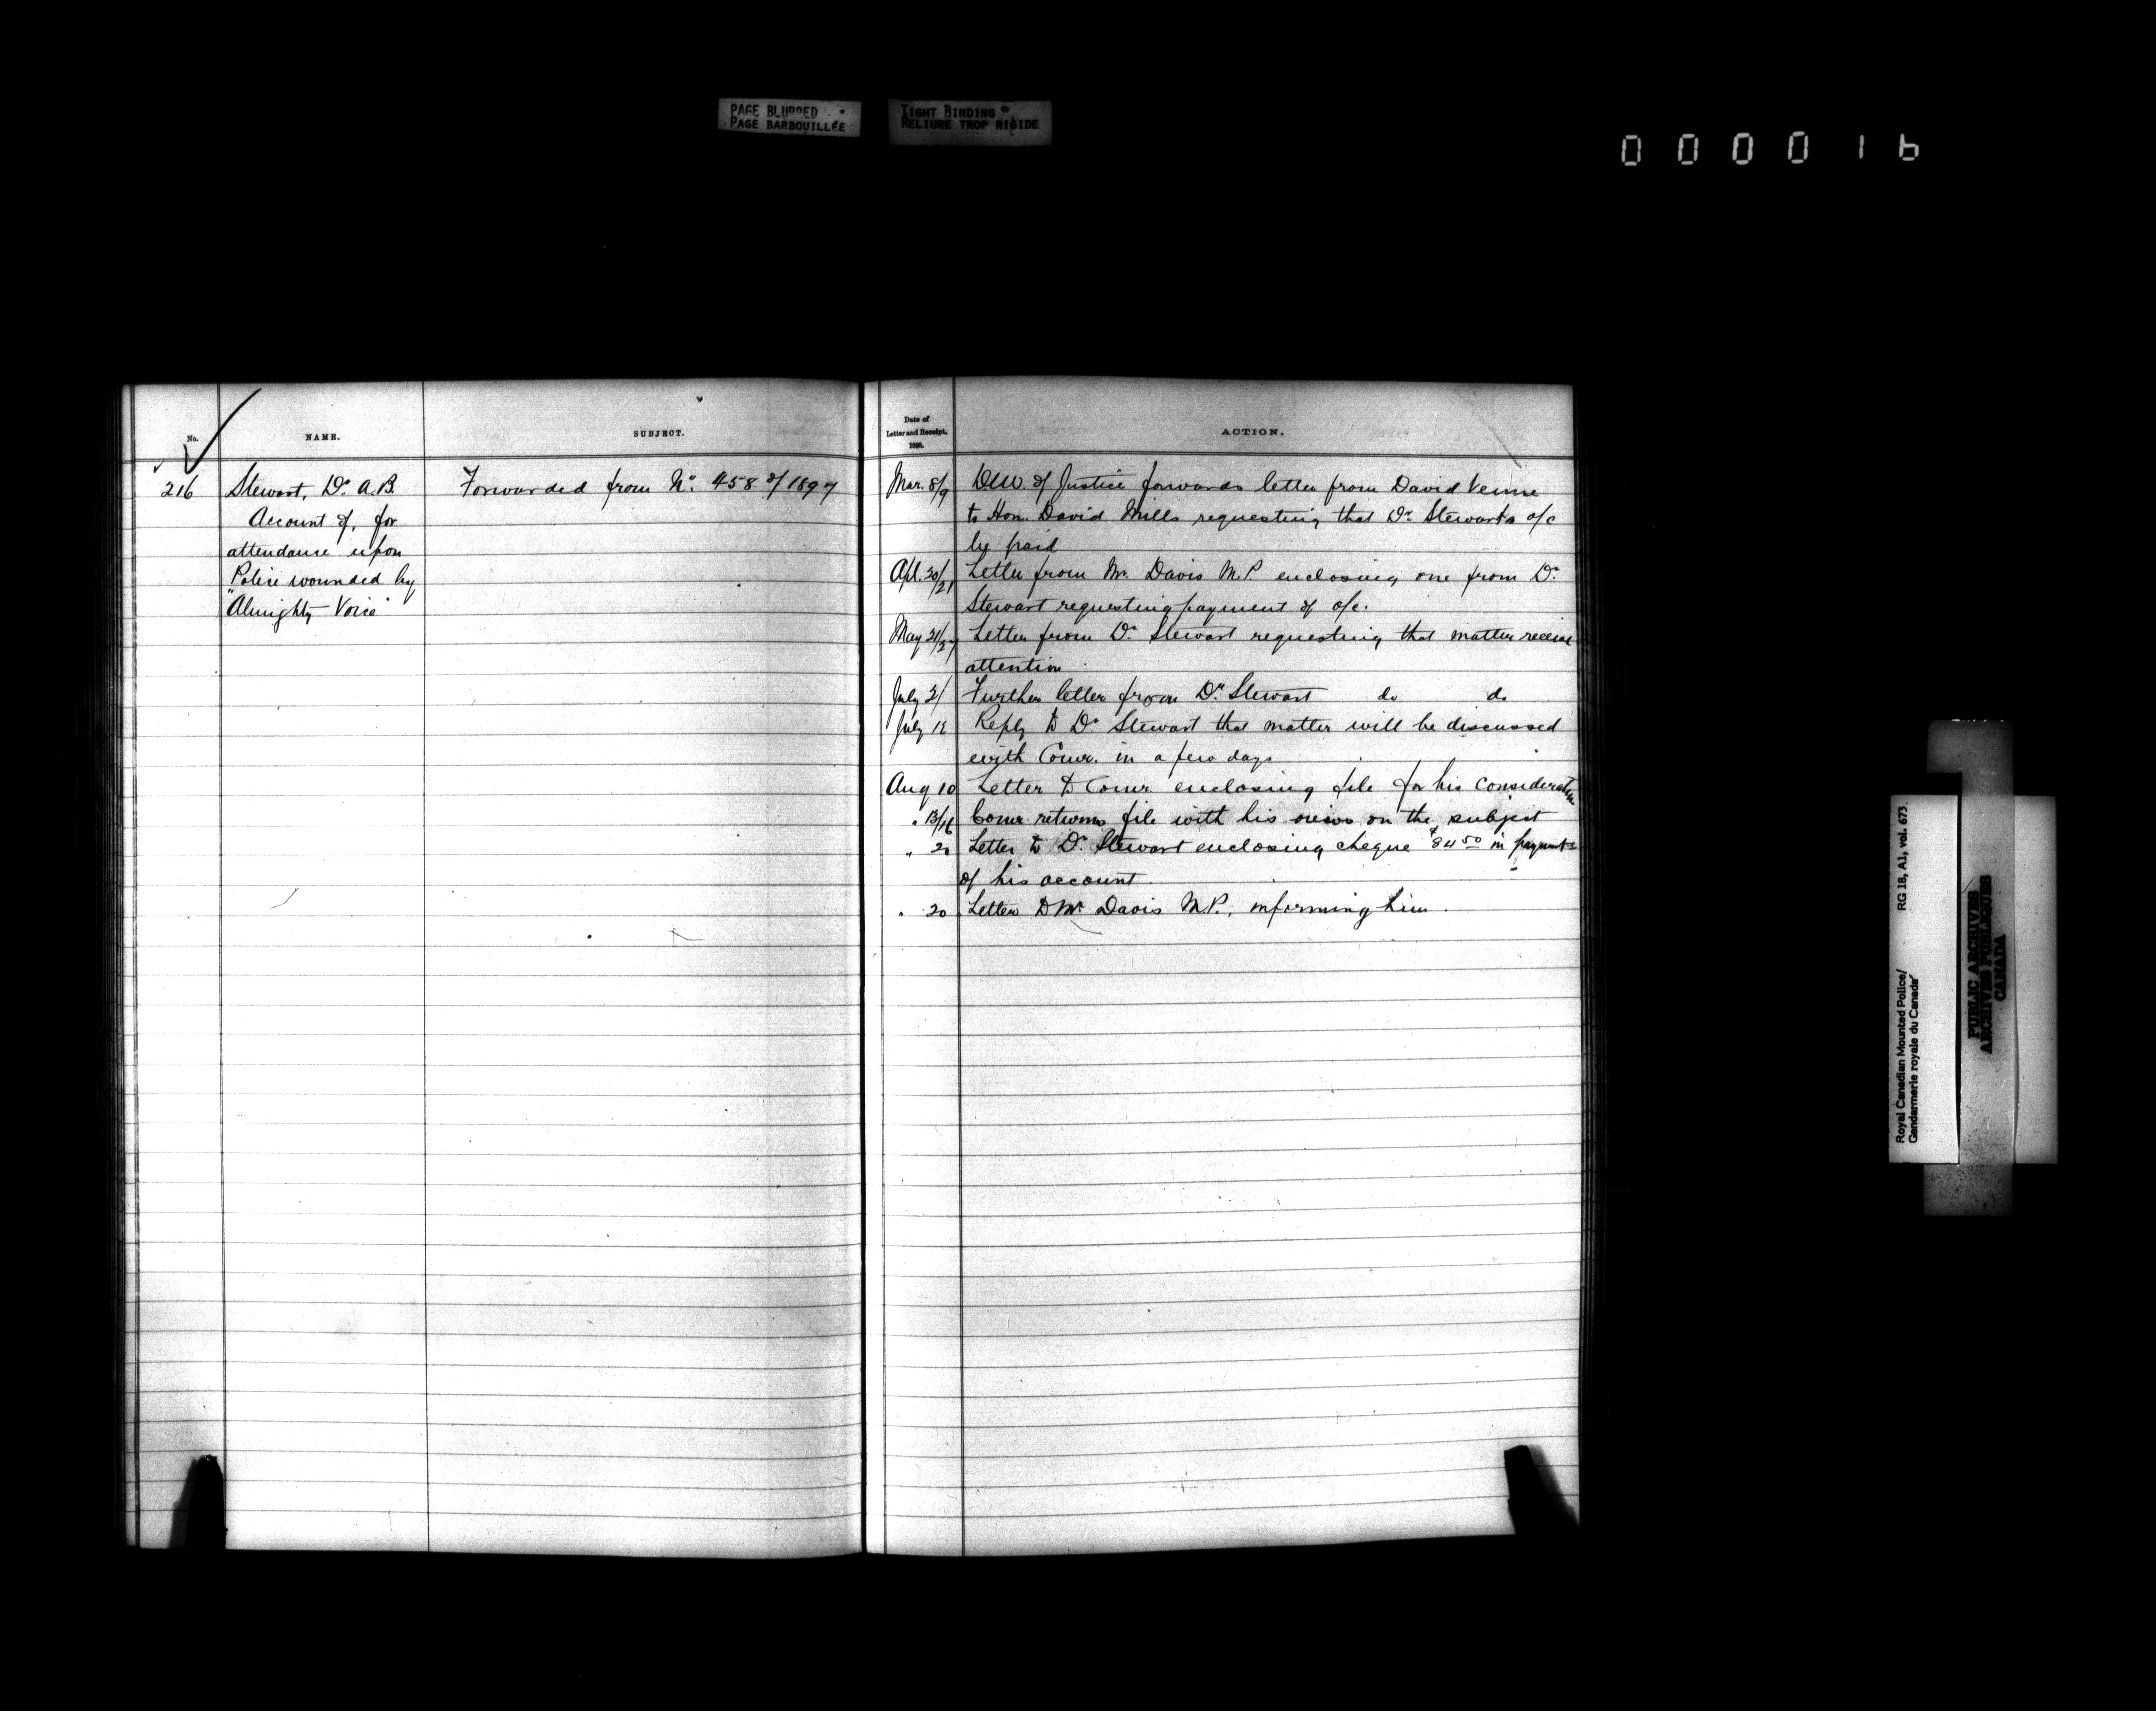 PAGE BLURRED
PAGE BARBOUILLÉE
TIGHT BINDING
RELIURE TROP RIGIDE
000016
No.
NAME.
SUBJECT.
216
Stewart, Dr. A.B.
Account of, for
attendance upon
Police wounded by
"Almighty Voice"
Forwarded from No. 458 of 1897
Date of
Letter and Receipt.
1898.
ACTION.
Mar. 8/9 of Justice forwards letter from David Venne
to Hon. David Mills requesting that Dr. Stewart's a/c
be paid
Apl. 20/21 Letter from Mr. Davis M.P. enclosing one from Dr.
Stewart requesting payment of a/c.
May 21/27 Letter from Dr. Stewart requesting that matter receive
attention
July 2/ Further letter from Dr. Stewart do do
July 12 Reply to Dr. Stewart that matter will be discussed
with Comr. in a few days
Aug 10 Letter to Comr. enclosing file for his consideration
" 13/16 Comr. returns file with his views on the subject
" 20 Letter to Dr. Stewart enclosing cheque $84.50 in payment
of his account
" 20 Letter to Mr. Davis M.P., informing him.
RG 18, A1, vol. 673.
Royal Canadian Mounted Police/
Gendarmerie royale du Canada
PUBLIC ARCHIVES
ARCHIVES PUBLIQUES
CANADA